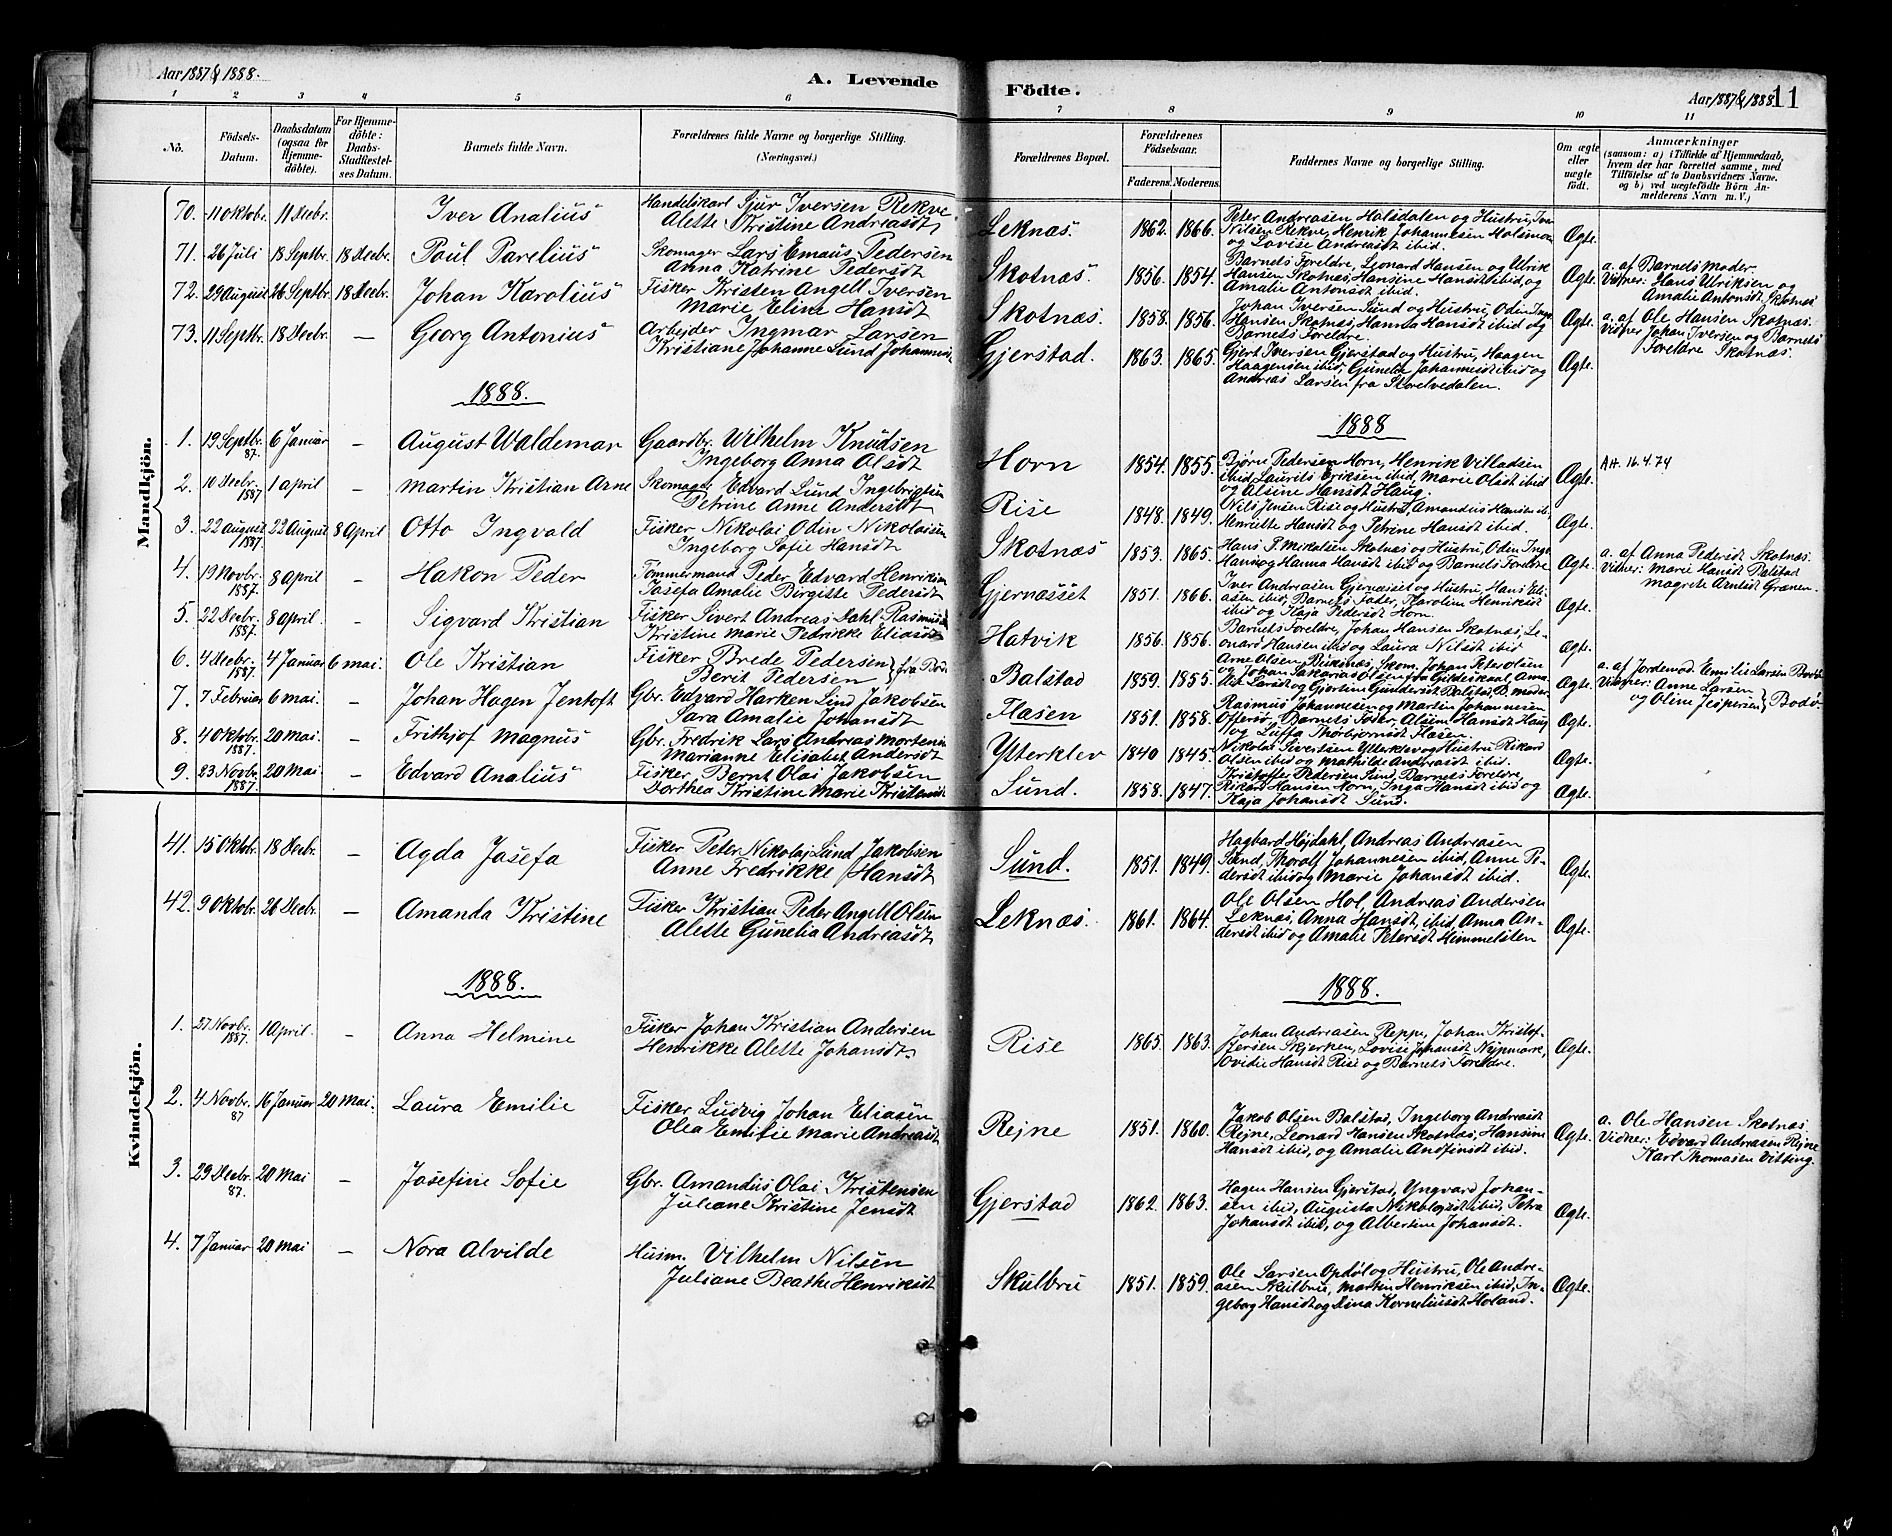 Aar 1887 & 1888.
A. Levende
1 2 3 4 5 6
No.
Födsels-Datum.
Daabsdatum (ogsaa for Hjemmedöbte).
For Hjemmedöbte: Daabs-Stadfæstelses Datum.
Barnets fulde Navn.
Forældrenes fulde Navne og borgerlige Stilling.
(Næringsvei.)
Mandkjön.
70. 11 Oktobr. 11 Decbr. Iver Analius Handelskarl Sjur Iversen Rekve
Alette Kristine Andreasdt
71. 26 Juli 18 Septbr. 18 Decbr. Paul Parelius Skomager Lars Emaus Pedersen
Anna Katrine Pedersdt
72. 29 August 26 Septbr. 18 Decbr. Johan Karolius Fisker Kristen Angell Iversen
Marie Eline Hansdt
73. 11 Septbr. 18 Decbr. — Georg Antonius Arbejder Ingmar Larsen
Kristiane Johanne Lund Johannesd
1888.
1. 19 Septbr. 87. 6 Januar — August Waldemar Gaardbr. Wilhelm Knudsen
Ingeborg Anna Olsdt
2. 10 Decbr. 1887 1 April — Martin Kristian Arne Skomager Edvard Lund Ingebrigtsen
Petrine Anne Andersdt
3. 22 August 1887. 22 August 8 April Otto Ingvald Fisker Nikolai Odin Nikolaisen
Ingeborg Sofie Hansdt
4. 19 Novbr. 1887. 8 April — Hakon Peder Tømmermand Peder Edvard Henriksen
Josefa Amalie Birgitte Pedersdt
5. 22 Decbr. 1887. 8 April. — Sigvard Kristian Fisker Sivert Andreas Dahl Rasmussen
Kristine Marie Pedrikke Eliasdt
6. 4 Decbr. 1887. 4 Januar 6 Mai. Ole Kristian Fisker Brede Pedersen
Berit Pedersen } fra Bodø
7. 7 Februar 6 Mai. — Johan Hagen Jentoft Gbr. Edvard Harken Lind Jakobsen
Sara Amalie Johansdt
8. 4 Oktobr. 1887. 20 Mai. — Frithjof Magnus Gbr. Fredrik Lars Andreas Mortensen
Marianne Elisabet Andersdt
9. 23 Novbr. 1887. 20 Mai. — Edvard Analius Fisker Bernt Olai Jakobsen
Dorthea Kristine Marie Kristensdt
Kvindekjön.
41. 15 Oktobr. 18 Decbr. — Agda Josefa Fisker Peter Nikolai Lund Jakobsen
Anne Fredrikke Hansdt
42. 9 Oktobr. 26 Decbr. — Amanda Kristine Fisker Kristian Peder Angell Olsen
Alette Gunelia Andreasdt
1888.
1. 27 Novbr. 1887. 1 April. — Anna Helmine Fisker Johan Kristian Andersen
Henrikke Alette Johansdt
2. 4 Novbr. 87 16 Januar 20 Mai. Laura Emilie Fisker Ludvig Johan Eliasen
Olea Emilie Marie Andreasdt
3. 29 Decbr. 87. 20 Mai — Josefine Sofie Gbr. Amandus Olai Kristensen
Juliane Kristine Jensdt
4. 7 Januar 20 Mai — Nora Alvilde Husm. Vilhelm Nilsen
Juliane Beathe Henriksdt
Födte.
Aar 1887 & 1888. 11
7 8 9 10 11
Forældrenes Bopæl.
Forældrenes Födselsaar.
Faderens. Moderens.
Faddernes Navne og borgerlige Stilling.
Om ægte eller uægte födt.
Anmærkninger
(saasom: a) i Tilfælde af Hjemmedaab, hvem der har forrettet samme, med Tilföielse af to Daabsvidners Navne, og b) ved uægtefödte Börn Anmelderens Navn m. V.)
Leknæs. 1862. 1866. Peter Andreasen Halsdalen og Hustru, Iver
Nilsen Rekve, Henrik Johannesen Holsmo
og Lovise Andreasdt ibid. Ægte.
Skotnæs. 1856. 1854. Barnets Foreldre, Leonard Hansen og Ulrik
Hansen Skotnæs, Hansine Hansdt ibid, og
Amalie Antonsdt ibid. Ægte. a. af Barnets Moder.
Vidner: Hans Ulriksen og
Amalie Antonsdt, Skotnæs
Skotnæs. 1858. 1856. Johan Iversen Sund og Hustru, Odin Inge
Hansen Skotnæs, Hanna Hansdt ibid og
Barnets Foreldre. Ægte. a. af Ole Hansen Skotnæs.
Vidner Johan Iversen og Barnets
Foreldre Skotnæs.
Gjerstad. 1863. 1865. Gjert Iversen Gjerstad og Hustru, Haagen
Haagensen ibid, Gunelia Johannesdt ibid og
Andreas Larsen fra Storelvedalen. Ægte.
1888
Horn 1854. 1855. Bjørn Pedersen Horn, Henrik Villadsen
ibid, Laurits Eriksen ibid, Marie Olsdt ibid
og Alsine Hansdt Haug. Ægte. Att. 16.4.74
Rise 1848. 1849. Nils Jensen Rise og Hustru, Amandus Hansen ib.
Henriette Hansdt og Petrine Hansdt ibid. Ægte.
Skotnæs 1853. 1865. Hans P. Mikalsen Skotnæs og Hustru, Odin Inge
Hans. og Hanna Hansdt ibid og Barnets Foreldre Ægte. a. af Anna Pedersdt Skotnæs.
Vidner: Marie Hansdt Balstad
Magrete Arntsdt Grænen.
Gjernæsset 1851. 1866. Iver Andreasen Gjernæsset og Hustru, Hans Eli-
asen ibid, Barnets Fader, Karoline Henriksdt
ibid og Kaja Pedersdt Horn. Ægte.
Hatvik 1856. 1856. Barnets Foreldre, Johan Hansen Skotnæs, Le-
onard Hansen ibid og Laura Nilsdt ibid Ægte.
Balstad 1859. 1855. Arne Olsen Buksnæs, Skom. Johan Peter Olsen
og Johan Sakarias Olsen fra Gildeskaal, Ama-
lie Larsdt og Gjertine Gundersdt Balstad, B. Moder. Ægte. a. af Jordemod. Emilie Larsen Bodø
Vidner: Anne Larsen
og Oline Jespersen } Bodø.
Flæsen 1851. 1858. Rasmus Johannesen og Martin Johannesen
Offersø, Barnets Fader, Alsine Hansdt Haug
og Luffa Thorbjørnsdt Flæsen. Ægte.
Ytterklev 1840 1845. Nikolai Sivertsen Ytterklev og Hustru Rikard
Olsen ibid og Mathilde Andreasdt ibid. Ægte.
Sund. 1858. 1847. Kristoffer Pedersen Sund, Barnets Foreldre,
Rikard Hansen Horn, Inga Hansdt ibid og
Kaja Johansdt Sund. Ægte.
Sund. 1851. 1849. Hagbard Højdahl, Andreas Andreasen
Sund, Thoralf Johannesen ibid, Anne Pe-
dersdt ibid og Marie Johansdt ibid. Ægte.
Leknæs. 1861. 1864. Ole Olsen Hol, Andreas Andersen
Leknæs, Anna Hansdt, ibid, Anna An-
dersdt ibid og Amalie Petersdt Himmelsten Ægte.
1888.
Rise 1865. 1863. Johan Andreasen Reppe, Johan Kristof-
fersen Skjerken, Lovise Johansdt Nejpmark,
Ovidie Hansdt Rise og Barnets Foreldre. Ægte.
Rejne 1851. 1860. Jakob Olsen Balstad, Ingeborg Andreasdt
Rejne, Leonard Hansen Skotnæs, Hansine
Hansdt ibid, og Amalie Andfinsdt ibid. Ægte. a. Ole Hansen Skotnæs
Vidner: Edvard Andreasen Rejne
Karl Thomasen Vitting.
Gjerstad 1862. 1863. Hagen Hansen Gjerstad, Yngvard Johan-
sen ibid, Augusta Nikolajsdt ibid, Petra
Johansdt ibid, og Albertine Johansdt. Ægte.
Skulbru 1851. 1859. Ole Larsen Opdøl og Hustru, Ole Andre-
asen Skulbru, Martin Henriksen ibid, In-
geborg Hansdt og Dina Korneliusdt Holand. Ægte.